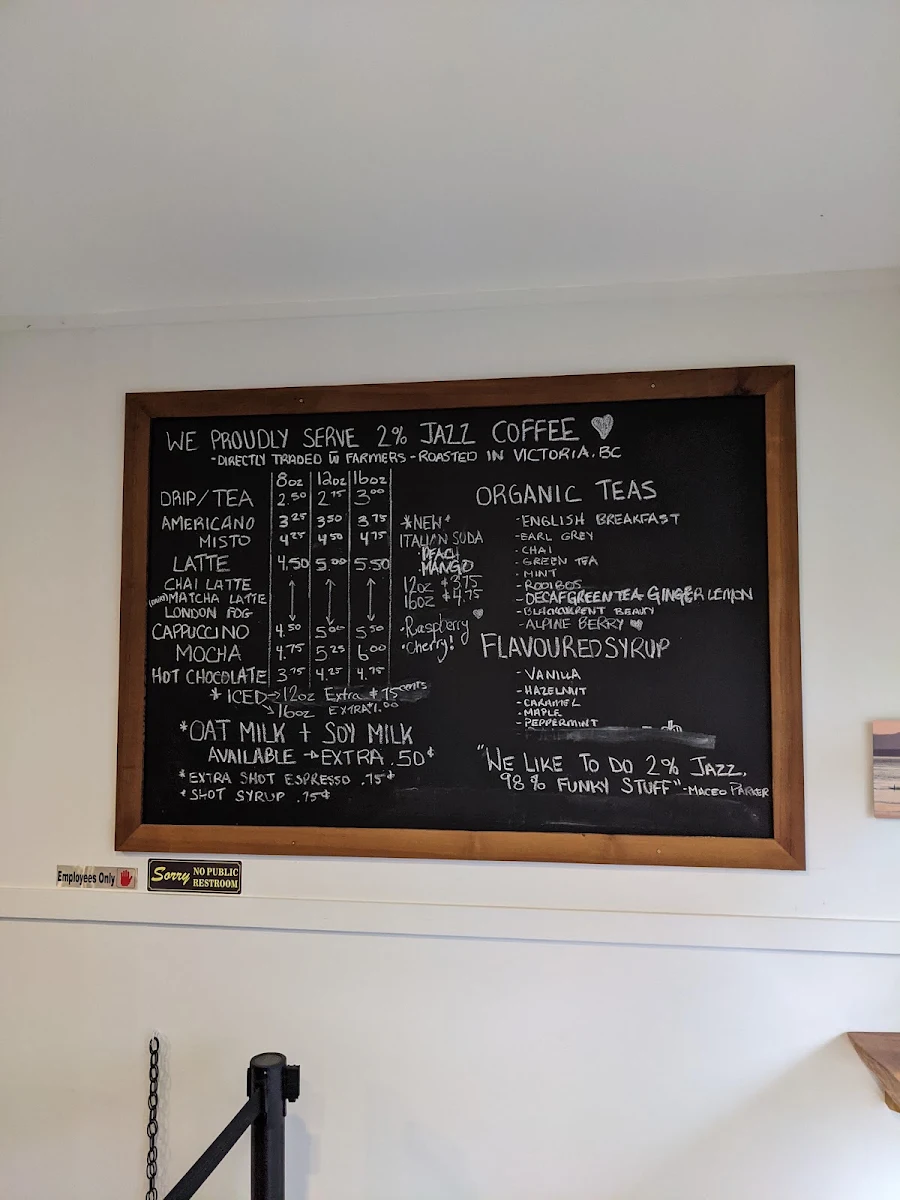 WE PROUDLY SERVE 2% JAZZ COFFEE
-DIRECTLY TRADED W FARMERS - ROASTED IN VICTORIA, BC
8oz 12oz 16oz
DRIP/TEA 2.50 2.75 3.00
AMERICANO 3.25 3.50 3.75
MISTO 4.25 4.50 4.75
LATTE 4.50 5.00 5.50
CHAI LATTE
MATCHA LATTE
LONDON FOG
CAPPUCCINO 4.50 5.00 5.50
MOCHA 4.75 5.25 6.00
HOT CHOCOLATE 3.75 4.25 4.75
* ICED → 12oz Extra $.75 cents
→ 16oz EXTRA 1.00
*OAT MILK + SOY MILK
AVAILABLE → EXTRA .50¢
*EXTRA SHOT ESPRESSO .75¢
*SHOT SYRUP .75¢
*NEW*
ITALIAN SODA
PEACH
MANGO
12oz $3.75
16oz $4.75
·Raspberry
·Cherry!
ORGANIC TEAS
-ENGLISH BREAKFAST
-EARL GREY
-CHAI
-GREEN TEA
-MINT
-ROOIBOS
-DECAF GREEN TEA GINGER LEMON
-BLACKCURRENT BEAUTY
-ALPINE BERRY
FLAVOURED SYRUP
-VANILLA
-HAZELNUT
-CARAMEL
-MAPLE
-PEPPERMINT
"WE LIKE TO DO 2% JAZZ,
98% FUNKY STUFF" -MACEO PARKER
Employees Only
Sorry NO PUBLIC
RESTROOM